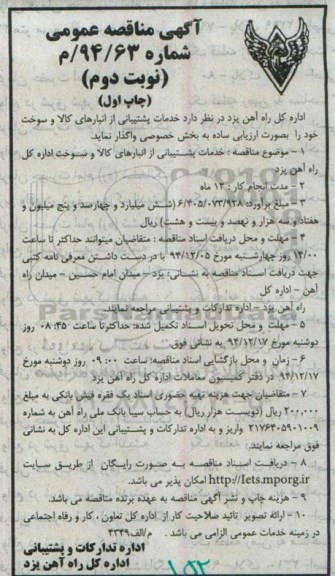 آگهی مناقصه عمومی
شماره ۹۴/۶۳/م
(نوبت دوم)
(چاپ اول)
اداره کل راه آهن یزد در نظر دارد خدمات پشتیبانی از انبارهای کالا و سوخت
خود را بصورت ارزیابی ساده به بخش خصوصی واگذار نماید.
۱- موضوع مناقصه: خدمات پشتیبانی از انبارهای کالا و سوخت اداره کل
راه آهن یزد
۲- مدت انجام کار: ۱۲ ماه
۳- مبلغ برآورد: ۶/۴۰۵/۰۷۳/۹۲۸ (شش میلیارد و چهارصد و پنج میلیون و
هفتاد و سه هزار و نهصد و بیست و هشت) ریال
۴- مهلت و محل دریافت اسناد مناقصه: متقاضیان میتوانند حداکثر تا ساعت
۱۴/۰۰ روز چهارشنبه مورخ ۹۴/۱۲/۰۵ با در دست داشتن معرفی نامه کتبی
جهت دریافت اسناد مناقصه به نشانی: یزد - میدان امام حسین - میدان راه
آهن - اداره کل
راه آهن یزد - اداره تدارکات و پشتیبانی مراجعه نمایند.
۵- مهلت و محل تحویل اسناد تکمیل شده: حداکثرتا ساعت ۰۸:۴۵ روز
دوشنبه مورخ ۹۴/۱۲/۱۷ به نشانی فوق.
۶- زمان و محل بازگشایی اسناد مناقصه: ساعت ۰۹:۰۰ روز دوشنبه مورخ
۹۴/۱۲/۱۷ در دفتر کمیسیون معاملات اداره کل راه آهن یزد
۷- متقاضیان جهت هزینه تهیه حضوری اسناد یک فقره فیش بانکی به مبلغ
۲۰۰,۰۰۰ ریال (دویست هزار ریال) به حساب سیبا بانک ملی راه آهن به شماره
۲۱۷۶۴۰۵۹۰۱۰۰۹ واریز و به اداره تدارکات و پشتیبانی این اداره کل به نشانی
فوق مراجعه نمایند.
۸- دریافت اسناد مناقصه به صورت رایگان از طریق سایت
http://Iets.mporg.ir امکان پذیر می باشد.
۹- هزینه چاپ و نشر آگهی مناقصه به عهده برنده مناقصه می باشد.
۱۰- ارائه تصویر تائید صلاحیت کار از اداره کل تعاون، کار و رفاه اجتماعی
در زمینه خدمات عمومی الزامی می باشد. م/الف۴۳۴۹
اداره تدارکات و پشتیبانی
اداره کل راه آهن یزد
۱۵۲